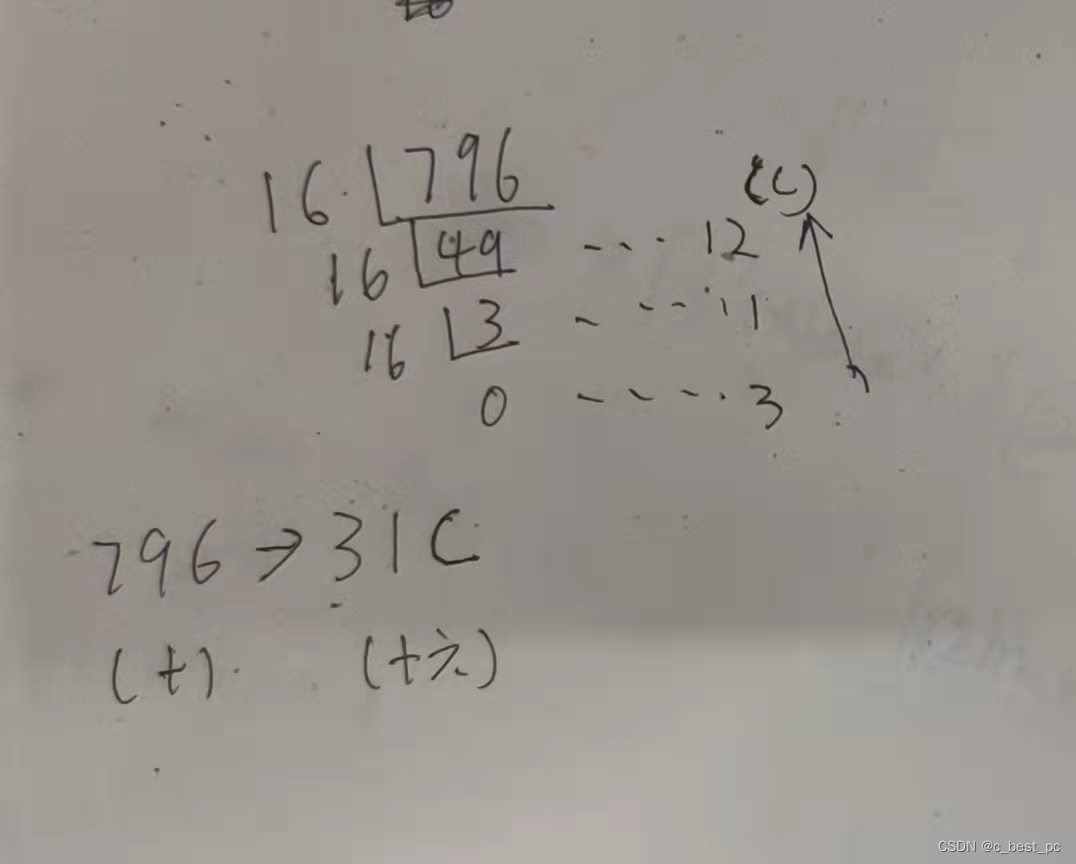 (C)
16 796
16 49 --- 12
16 3 - --- 1
0 ---- 3
796 → 31C
(十) (十六)
CSDN @c_best_pc